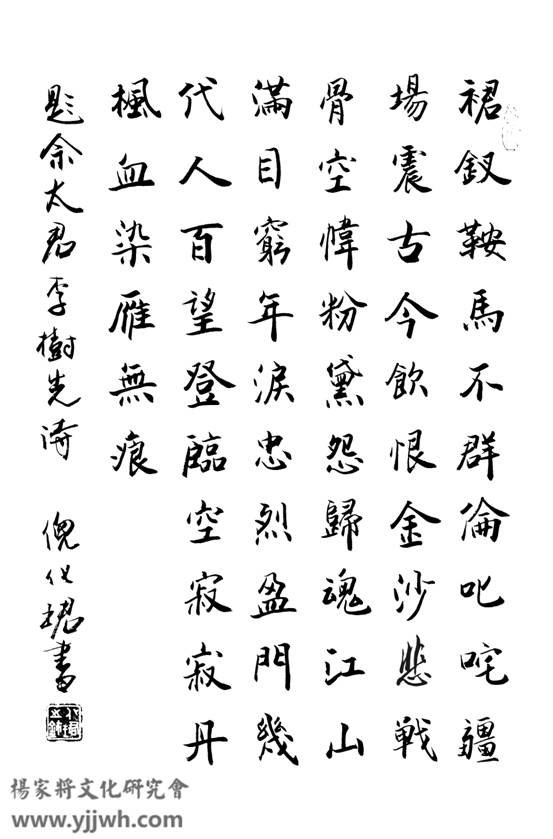 裙釵鞍馬不群倫叱咤疆
場震古今飲恨金沙悲戰
骨空幃粉黛怨歸魂江山
滿目窮年淚忠烈盈門幾
代人百望登臨空寂寂丹
楓血染雁無痕
題余太君李樹先詩 倪 書
楊家將文化研究會
www.yjjwh.com